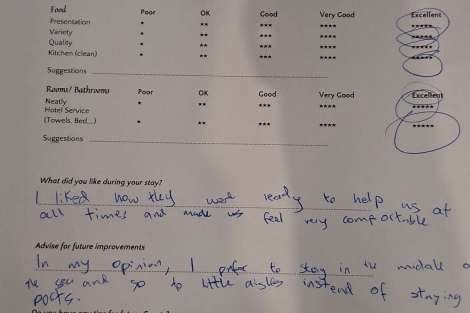 Food Poor OK Good Very Good Excellent
Presentation * ** *** **** *****
Variety * ** *** **** *****
Quality * ** *** **** *****
Kitchen (clean) * ** *** **** *****
Suggestions
Rooms/ Bathrooms Poor OK Good Very Good Excellent
Neatly * ** *** **** *****
Hotel Service
(Towels, Bed,...) * ** *** **** *****
Suggestions
What did you like during your stay?
I liked how they were ready to help us at
all times and made us feel very comfortable
Advise for future improvements
In my opinion, I prefer to stay in the middle
the sea and go to little instead of staying
ports.